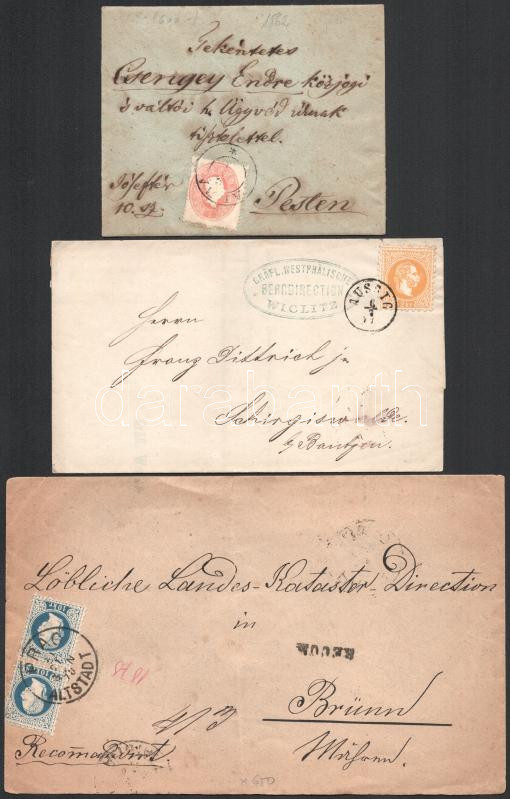 1862
Tekéntetes
Csengey Endre közjogi
s váltói h. Ügyvéd úrnak
tisztelettel.
Jósef tér
10. sz.
Pesten
GRÄFL. WESTPHÄLISCHE
BERGDIRECTION
WICLITZ
AUSSIG
6
Herrn
Franz Dittrich jr
Schirgiswalde.
b/ Bautzen.
darabanth
Löbliche Landes-Kataster-Direction
in
RECOM
PRAG
ALTSTADT
Brünn
Mähren.
Recommandirt.